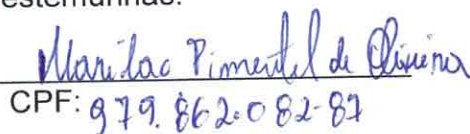 estemunhas:
Marilac Pimentel de Oliveira
CPF: 979.862.082-87